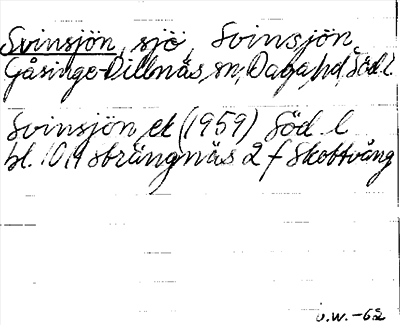 Svinsjön, sjö, Svinsjön
Gåsinge-Dillnäs sn, Daga hd, Söd. l.
Svinsjön ek (1959) Söd l
bl. 10,4 Strängnäs 2 f Skottvång
ö.w. -62